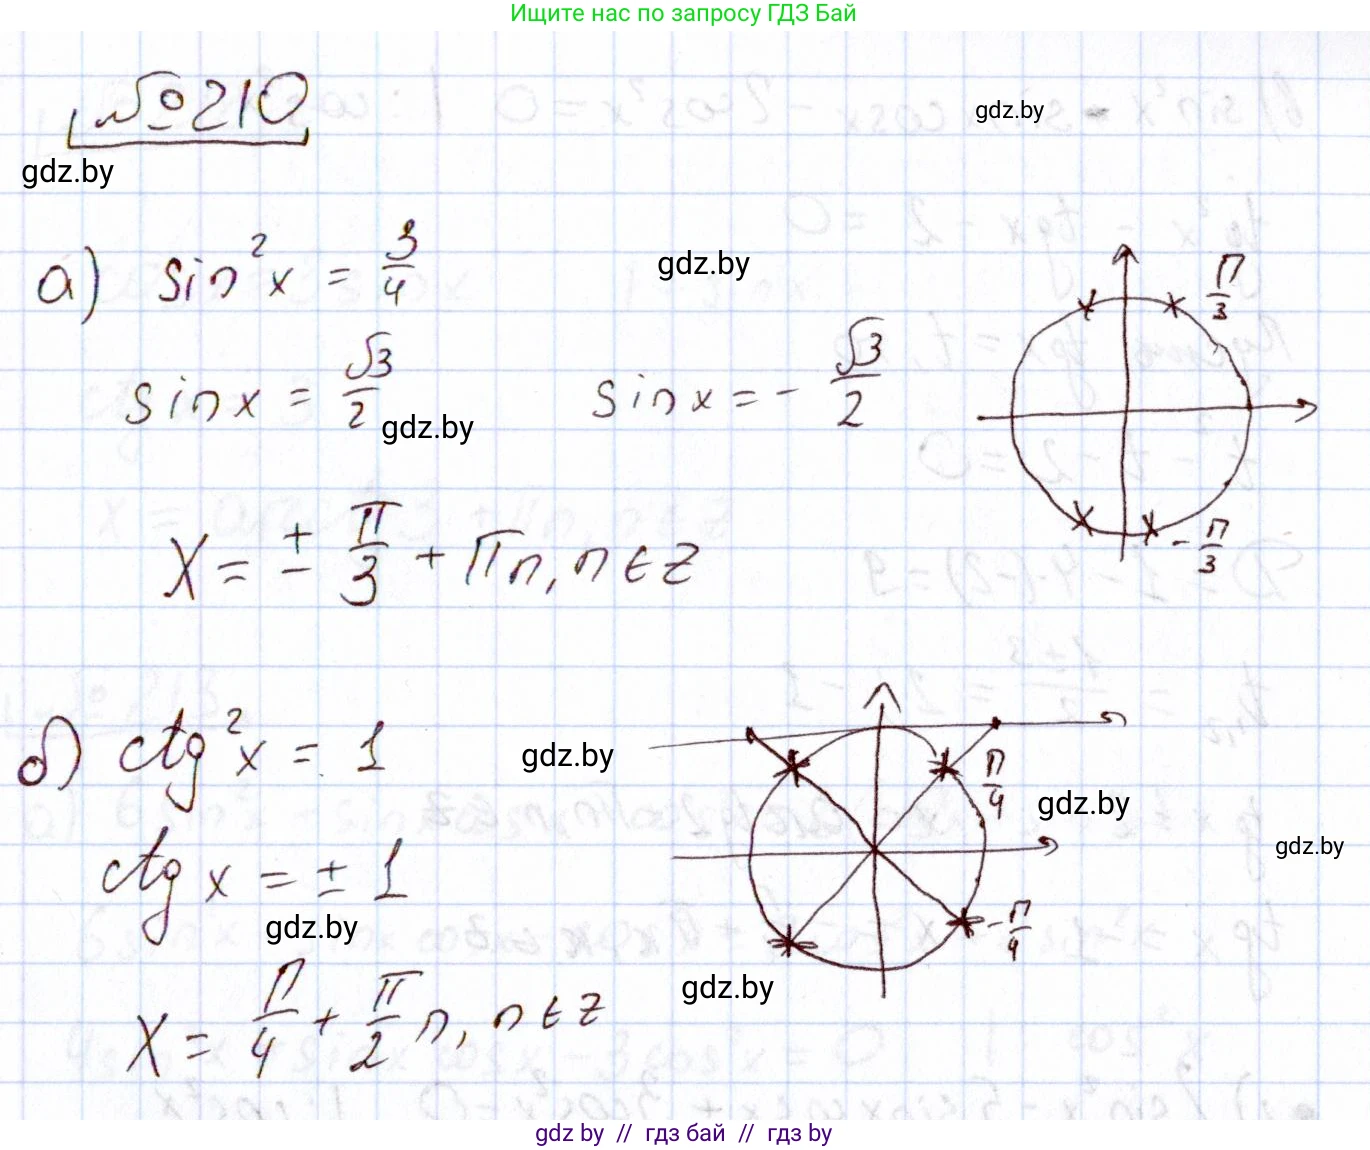 Ищите нас по запросу ГДЗ Бай
№210
gdz.by
gdz.by
а) sin²x = 3/4
gdz.by
sin x = √3/2
sin x = - √3/2
gdz.by
π/3
-π/3
x = ± π/3 + πn, n ∈ Z
б) ctg²x = 1
gdz.by
π/4
gdz.by
gdz.by
ctg x = ± 1
gdz.by
-π/4
gdz.by
x = π/4 + π/2 n, n ∈ Z
gdz.by // гдз бай // гдз by